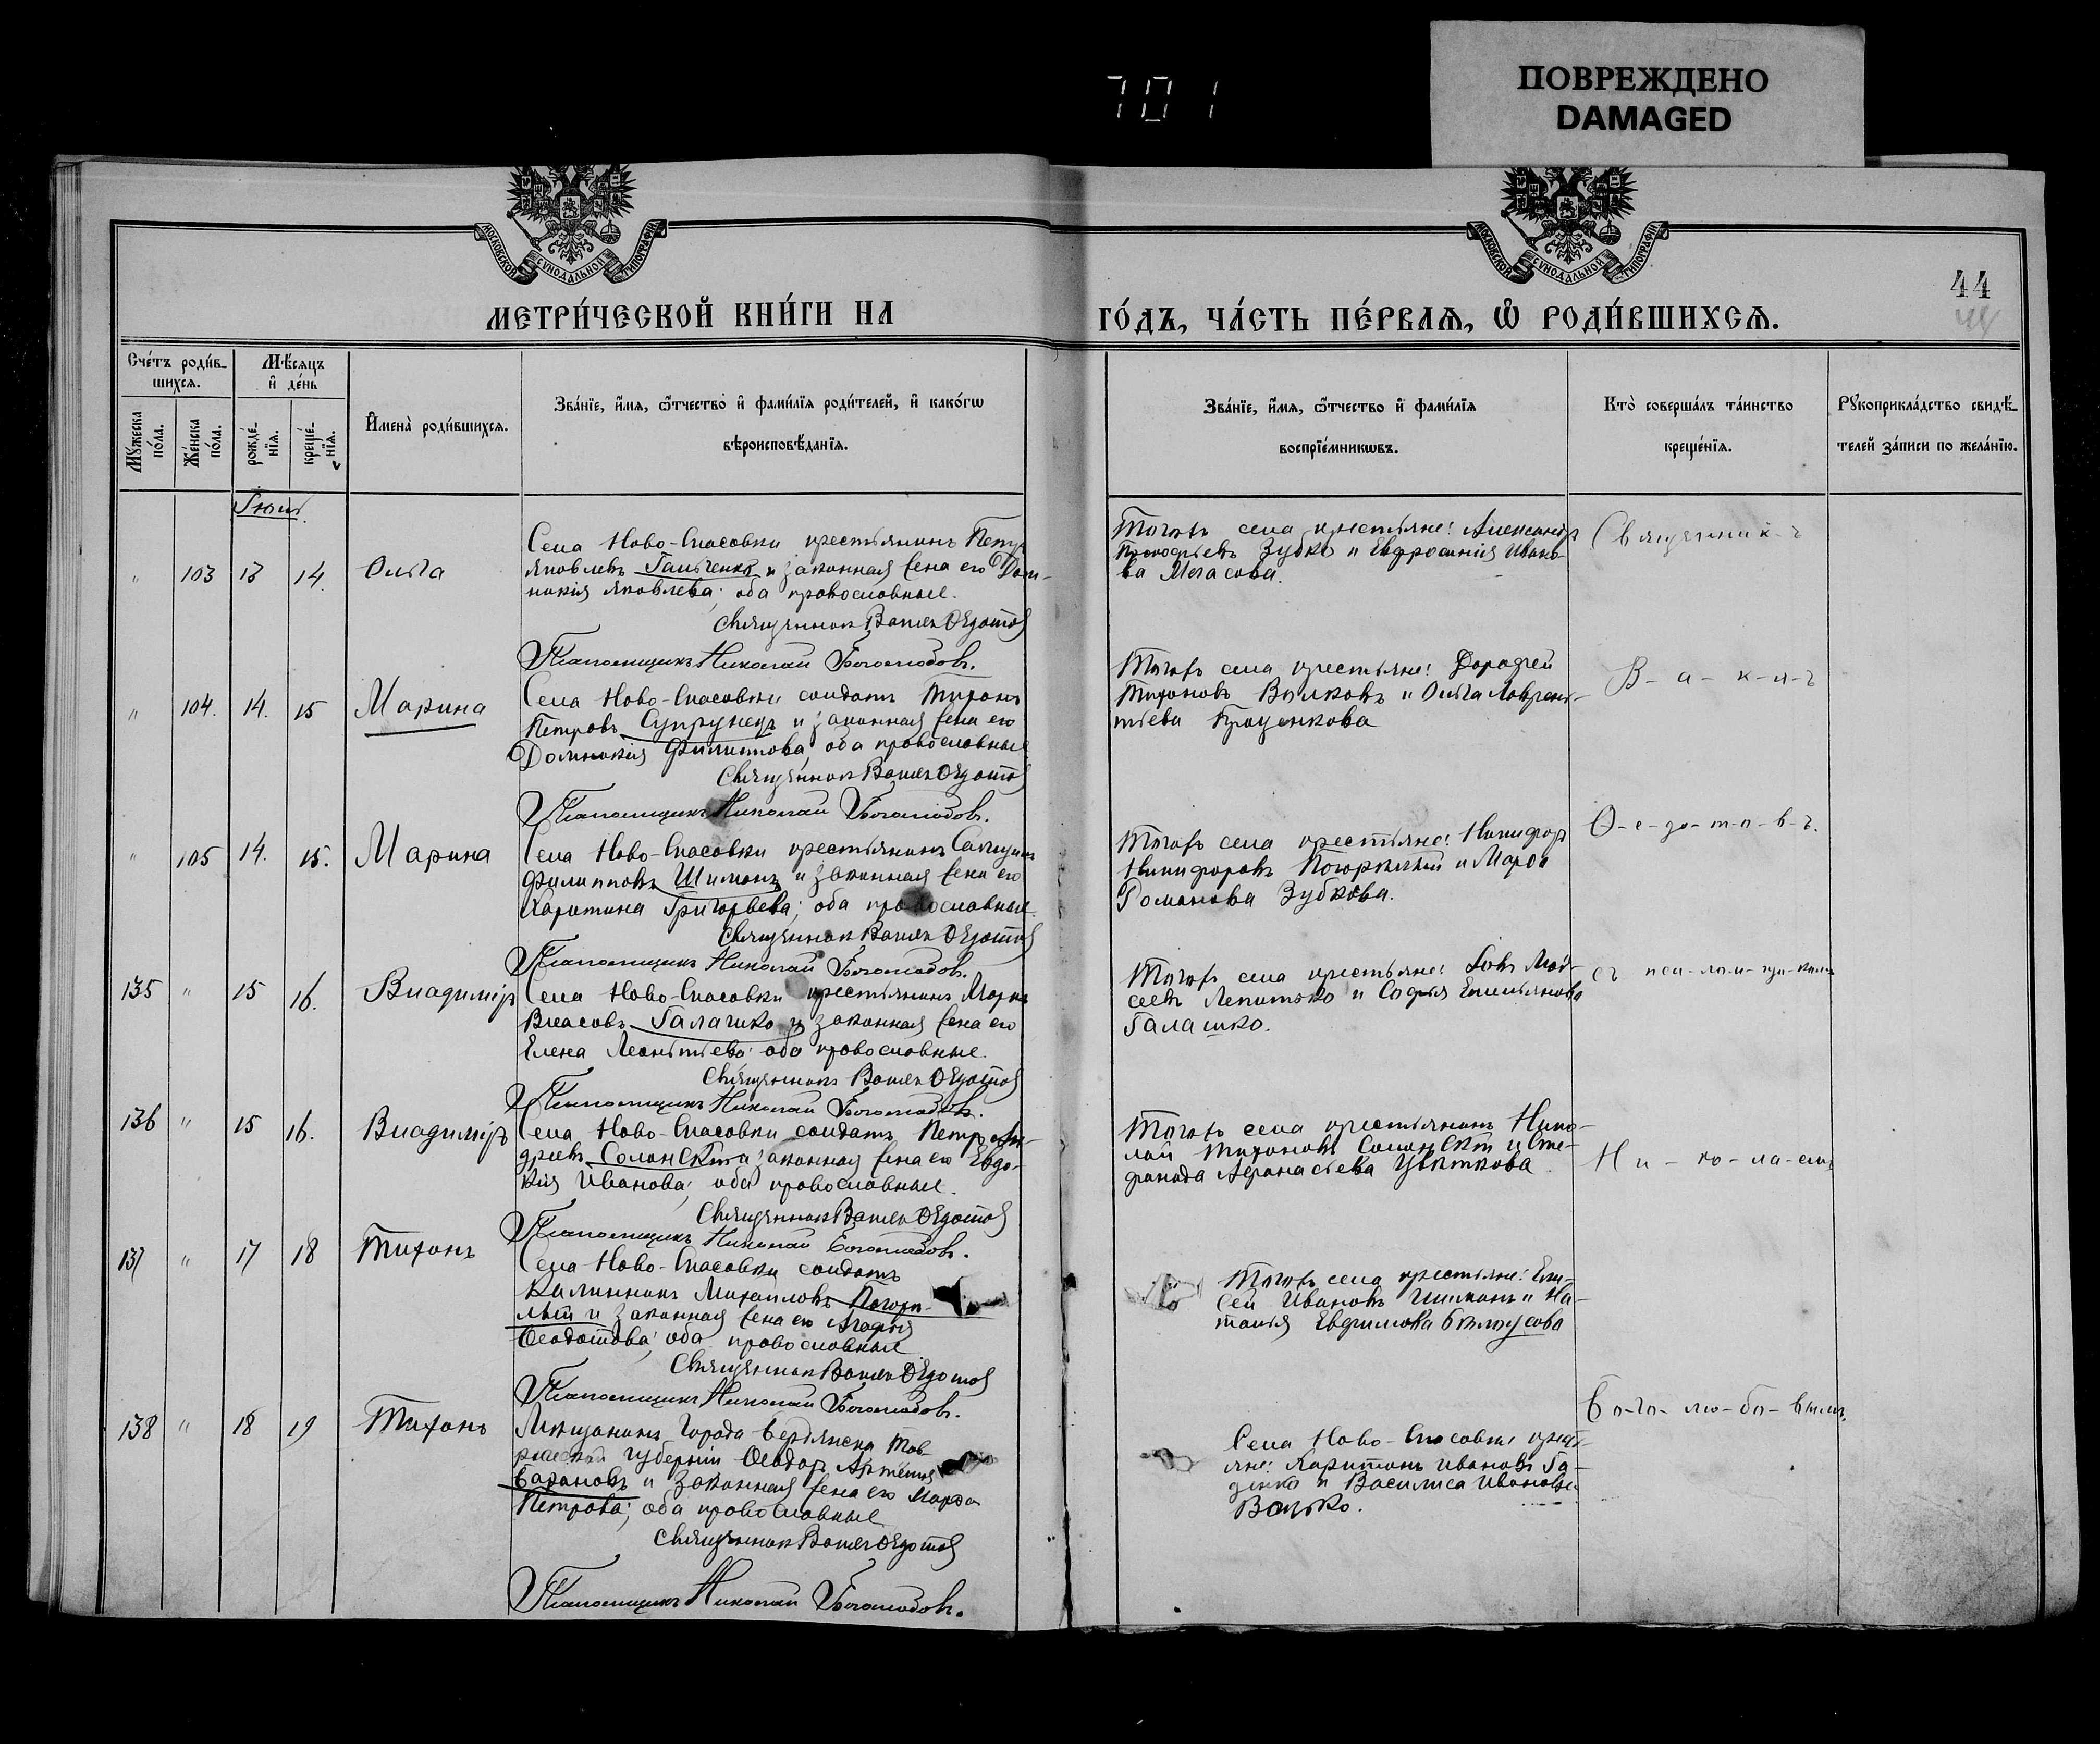 701
ПОВРЕЖДЕНО
DAMAGED
МОСКОВСКОЙ СУНОДАЛЬНОЙ ТИПОГРАФИИ
МОСКОВСКОЙ СУНОДАЛЬНОЙ ТИПОГРАФИИ
44
МЕТРИ́ЧЕСКОЙ КНИ́ГИ НА ГО́ДЪ, ЧА́СТЬ ПЕ́РВАЯ, Ѿ РОДИ́ВШИХСЯ.
Сче́тъ роди́в-
шихся.
Му́жеска по́ла.
Же́нска по́ла.
Мѣ́сяцъ
и҆ де́нь
рожде́-
нїя.
креще́-
нїя.
И҆мена̀ роди́вшихся.
Зва́нїе, и҆́мя, ѻ҆́тчество и҆ фами́лїя роди́телей, и҆ како́гѡ
вѣроисповѣ́данїя.
Зва́нїе, и҆́мя, ѻ҆́тчество и҆ фами́лїя
воспрїе́мникѡвъ.
Кто̀ соверша́лъ та́инство
креще́нїя.
Рꙋкоприкла́дство свидѣ́-
телей за́писи по жела́нїю.
" 103 13 14. Ольга
Села Ново-Спасовки крестьянинъ Петръ
Яковлевъ Гальченко и законная жена его Дом-
никія Яковлева; оба православные.
Священникъ Вакхъ Ѳедотовъ
Псаломщикъ Николай Боголюбовъ.
Тогожъ села крестьяне: Александръ
Прокофьевъ Зубко и Евфросинія Ивано-
ва
Священник-ъ
" 104. 14. 15 Марина
Села Ново-Спасовки солдатъ Тихонъ
Петровъ Супрунецъ и законная жена его
Домникія Филиппова, оба православные
Священникъ Вакхъ Ѳедотовъ
Псаломщикъ Николай Боголюбовъ.
Тогожъ села крестьяне: Дорофей
Тихоновъ Волковъ и Ольга Лаврен-
тьева Гроценкова
В-а-к-х-ъ
" 105 14. 15. Марина
Села Ново-Спасовки крестьянинъ
Филипповъ Шиманъ и законная жена его
Харитина Григорьева; оба православные.
Священникъ Вакхъ Ѳедотовъ
Псаломщикъ Николай Боголюбовъ.
Тогожъ села крестьяне: Никифоръ
Никифоровъ Погорѣлый и Марфа
Романова Зубкова.
Ѳ-е-до-т-о-в-ъ.
135 " 15 16. Владиміръ
Села Ново-Спасовки крестьянинъ Марко
Власовъ Галашко и законная жена его
Елена Леонтьева оба православные.
Священникъ Вакхъ Ѳедотовъ
Псаломщикъ Николай Боголюбовъ.
Тогожъ села крестьяне: Мои-
сеевъ и Софья Емельянова
Галашко.
съ пса-лом-щи-комъ
136 " 15 16. Владиміръ
Села Ново-Спасовки солдатъ Петръ Ан-
дреевъ Солонскій и законная жена его Евдо-
кія Иванова; оба православные.
Священникъ Вакхъ Ѳедотовъ
Псаломщикъ Николай Боголюбовъ.
Тогожъ села крестьянинъ Нико-
лай Тихоновъ Солонскій и Сте-
фанида Афанасьева Цвѣткова
Ни-ко-ла-емъ
137 " 17 18 Тихонъ
Села Ново-Спасовки солдатъ
Калинникъ Михайловъ Погорѣ-
лый и законная жена его Агафія
Ѳеодотова; оба православные
Священникъ Вакхъ Ѳедотовъ
Псаломщикъ Николай Боголюбовъ.
Тогожъ села крестьяне: Ели-
сей Ивановъ Шиманъ и На-
талія Евфимова Бѣлоусова
138 " 18 19 Тихонъ
Мѣщанинъ города Бердянска Тав-
рической губерніи Ѳеодоръ
Барановъ и законная жена его Марфа
Петрова; оба православные
Священникъ Вакхъ Ѳедотовъ
Псаломщикъ Николай Боголюбовъ.
Села Ново-Спасовки кресть-
яне: Харитонъ Ивановъ Га-
денко и Василиса Иванова
Волько.
Бо-го-лю-бо-вымъ.